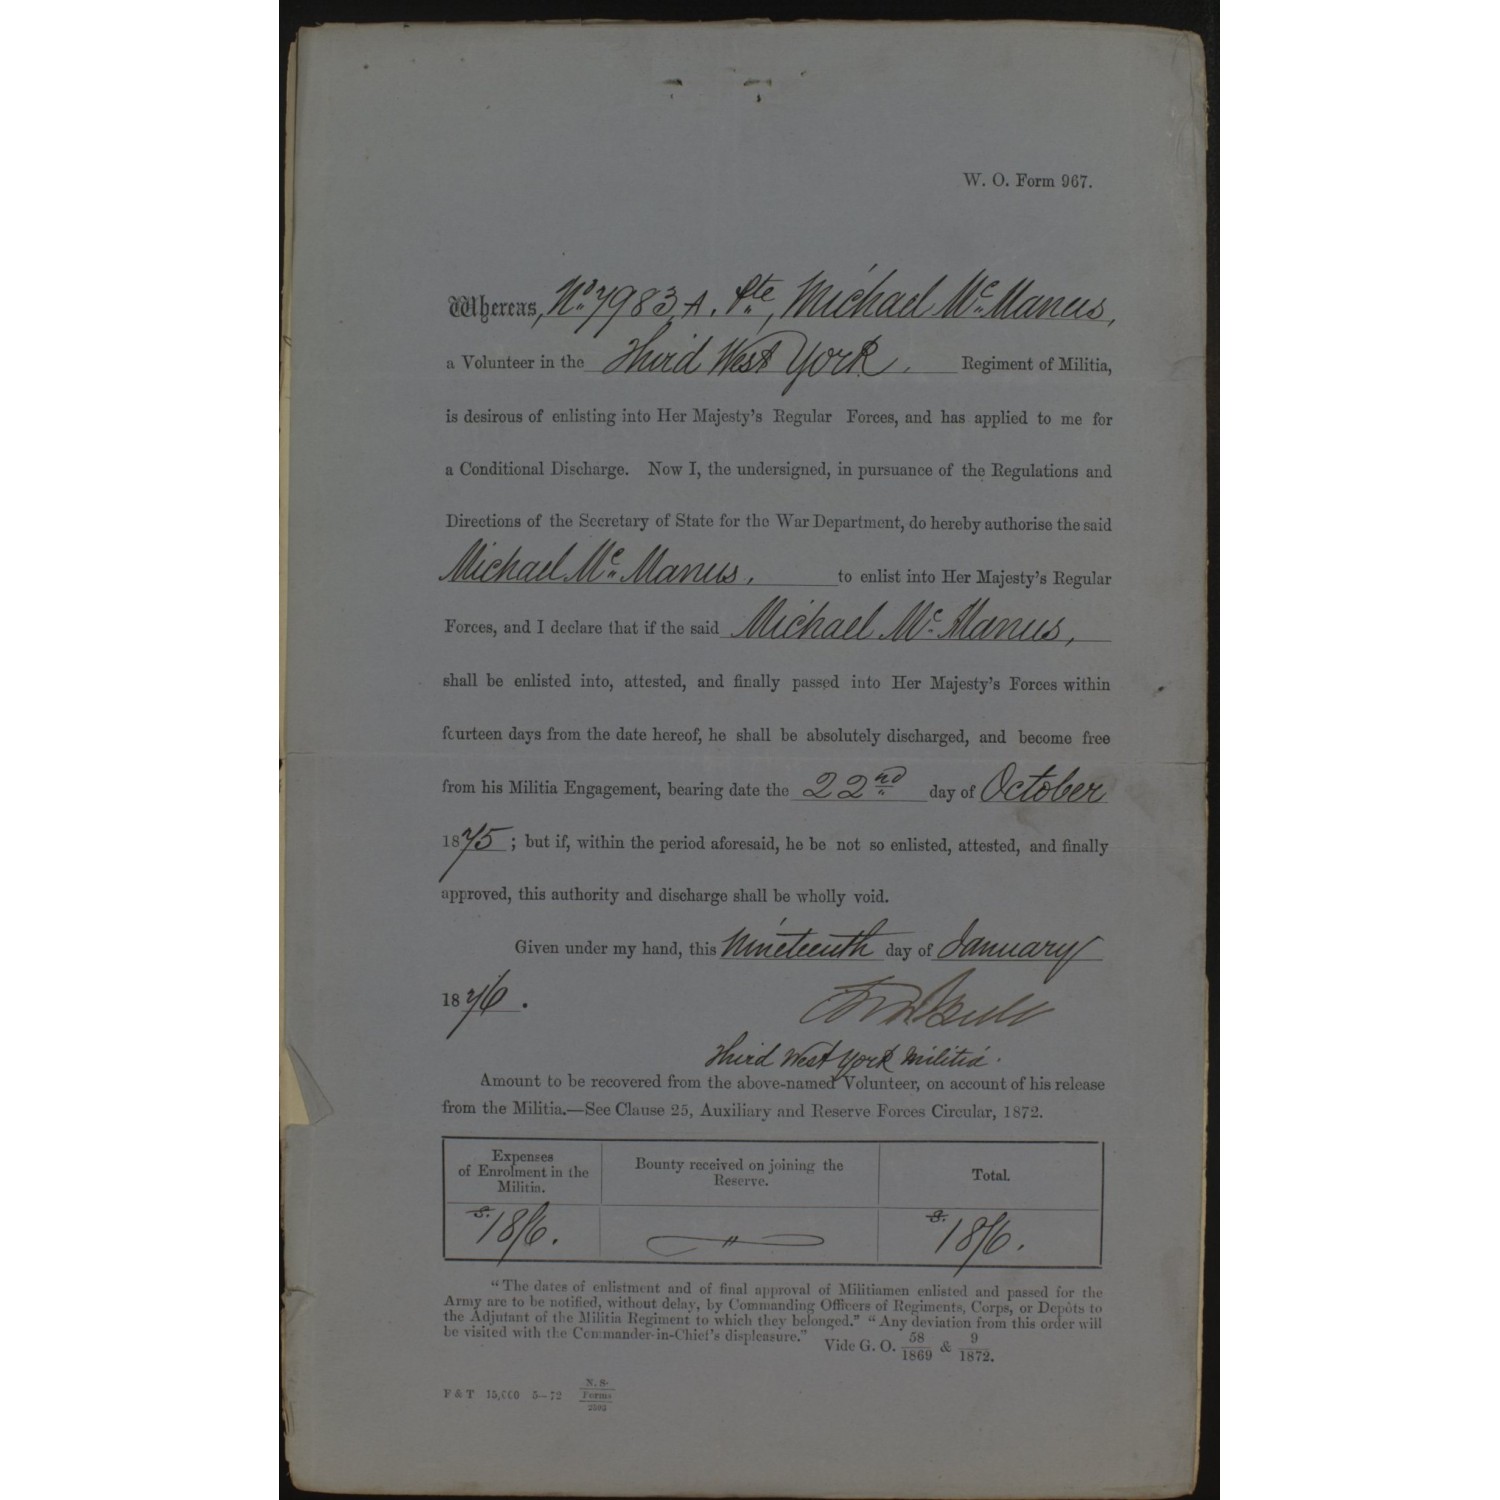 W. O. Form 967.
Whereas, No. 7983 A. Pte, Michael Mc. Manus,
a Volunteer in the Third West York. Regiment of Militia,
is desirous of enlisting into Her Majesty's Regular Forces, and has applied to me for
a Conditional Discharge. Now I, the undersigned, in pursuance of the Regulations and
Directions of the Secretary of State for the War Department, do hereby authorise the said
Michael Mc. Manus, to enlist into Her Majesty's Regular
Forces, and I declare that if the said Michael Mc. Manus,
shall be enlisted into, attested, and finally passed into Her Majesty's Forces within
fourteen days from the date hereof, he shall be absolutely discharged, and become free
from his Militia Engagement, bearing date the 22nd day of October
1875; but if, within the period aforesaid, he be not so enlisted, attested, and finally
approved, this authority and discharge shall be wholly void.
Given under my hand, this Nineteenth day of January
1876.
Third West York Militia.
Amount to be recovered from the above-named Volunteer, on account of his release
from the Militia.—See Clause 25, Auxiliary and Reserve Forces Circular, 1872.
Expenses of Enrolment in the Militia.
Bounty received on joining the Reserve.
Total.
s. 18/6.
"
s. 18/6.
"The dates of enlistment and of final approval of Militiamen enlisted and passed for the
Army are to be notified, without delay, by Commanding Officers of Regiments, Corps, or Depôts to
the Adjutant of the Militia Regiment to which they belonged." "Any deviation from this order will
be visited with the Commander-in-Chief's displeasure." Vide G. O. 58/1869 & 9/1872.
F & T 15,000 5—72 N. S. Forms 2593